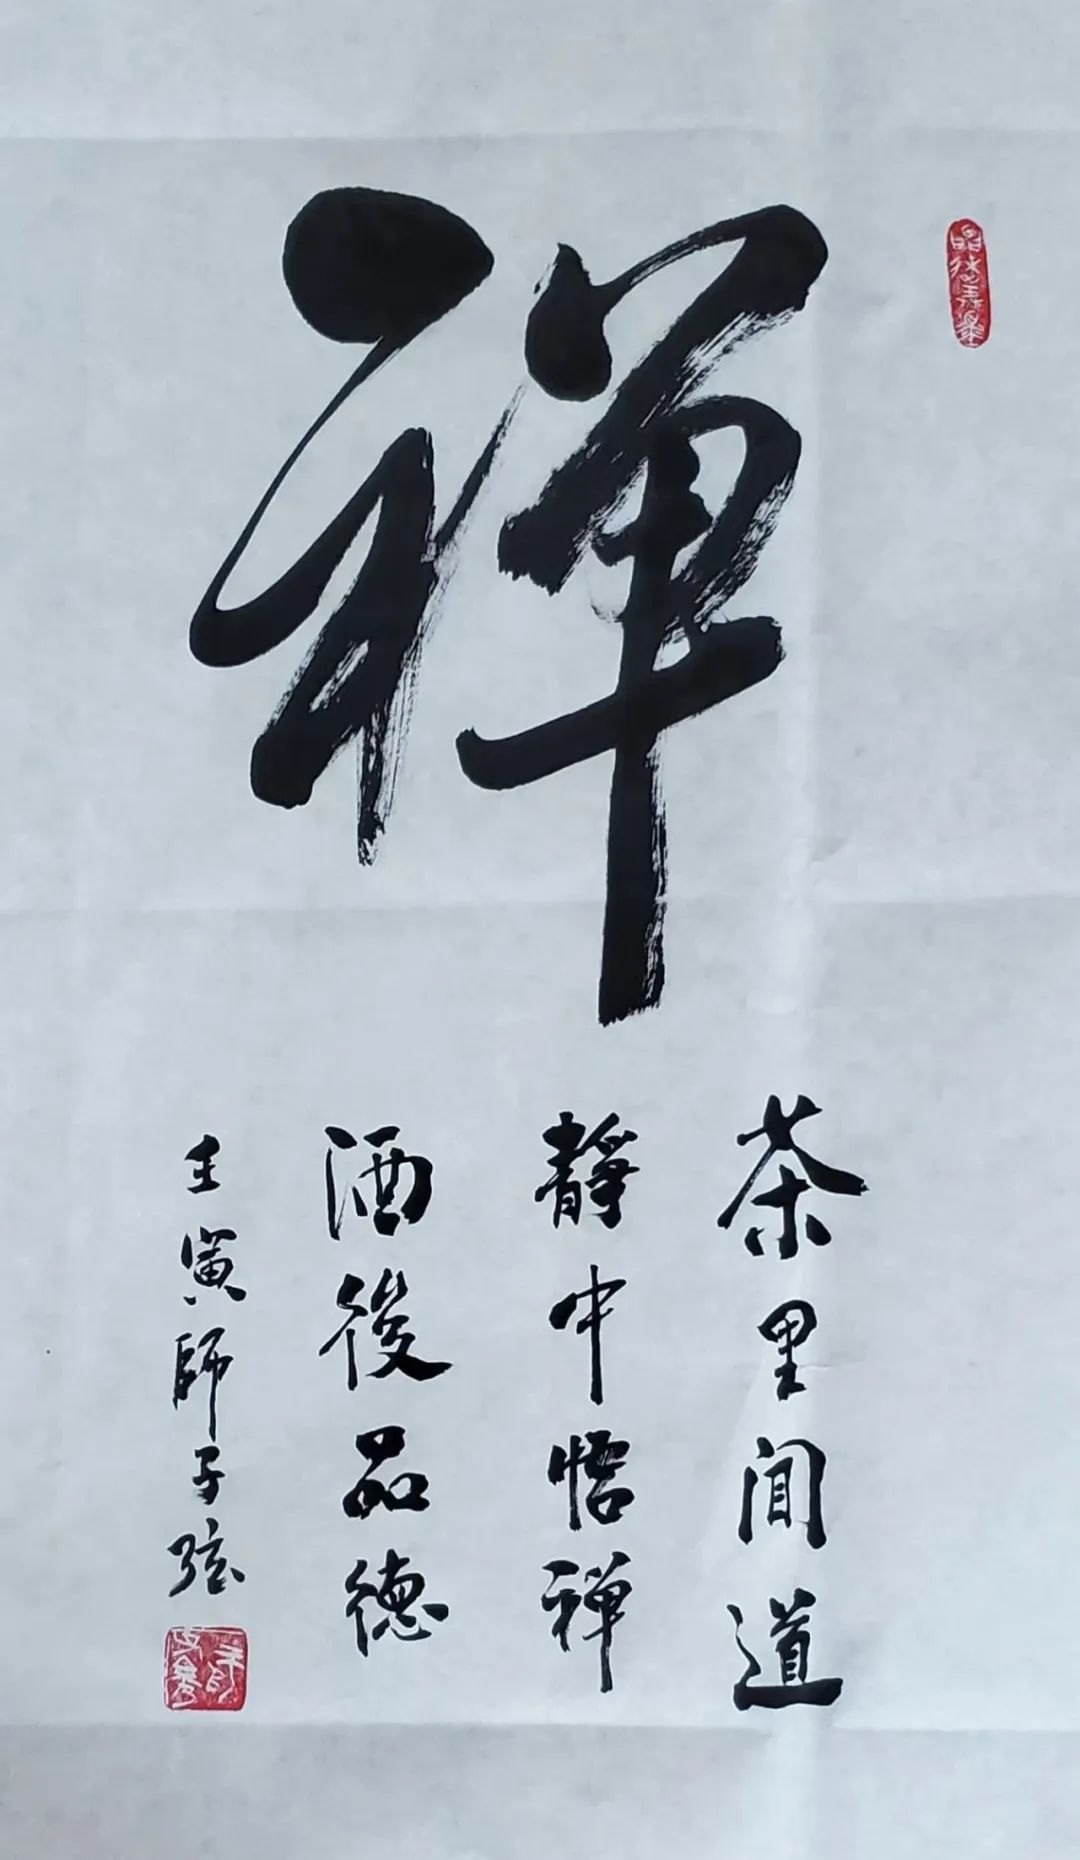 禅
茶里闻道
靜中悟禅
酒後品德
壬寅師子弦